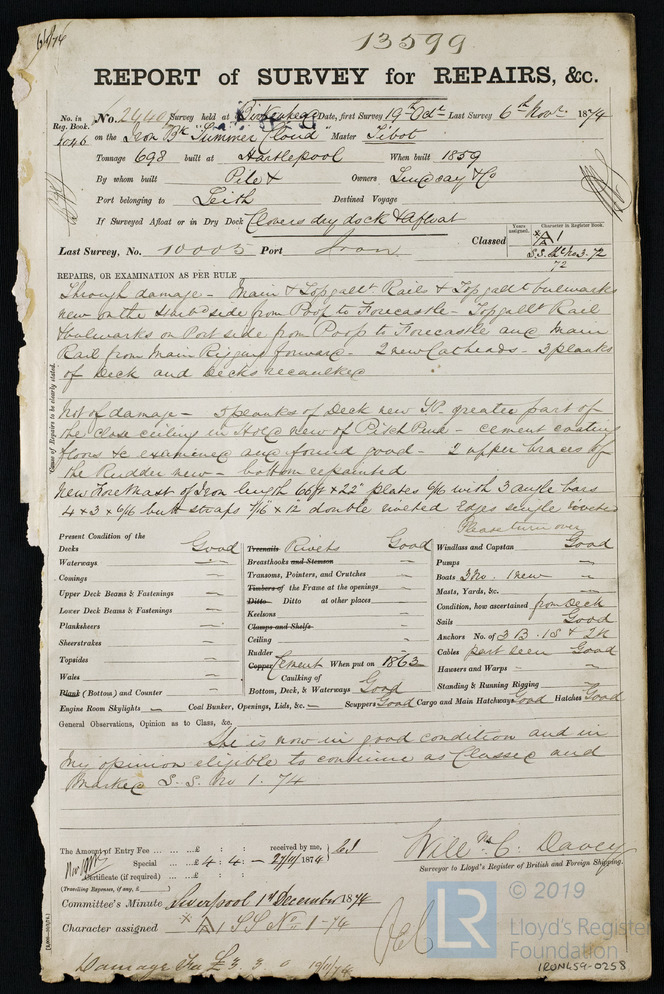 13599
REPORT of SURVEY for REPAIRS, &c.
No. in Reg. Book. No. Survey held at Birkenhead Date, first Survey 19th Octr Last Survey 6th Novr 1874
1046 on the Iron Bk "Summer Cloud" Master Tibot
Tonnage 698 built at Hartlepool When built 1859
By whom built Pile & Owners Lindsay & Co
Port belonging to Leith Destined Voyage
If Surveyed Afloat or in Dry Dock Clovers dry dock & Afloat
Years assigned. Character in Register Book.
Last Survey, No. 10005 Port Iron Classed A 1
S.S. No 3. 72
72
REPAIRS, OR EXAMINATION AS PER RULE
Cause of Repairs to be clearly stated.
Through damage – Main & Topgallt Rails & Topgallt bulwarks
new on the Starbd side from Poop to Forecastle – Topgallt Rail
bulwarks on Port side from Poop to Forecastle and main
Rail from Main Rigging forward – 2 new Catheads – 3 planks
of Deck and Decks recaulked
Not of damage – 5 planks of Deck new greater part of
the close ceiling in Hold new of Pitch Pine – cement coating
floors &c examined and found good – 2 upper braces of
the Rudder new – bottom repainted
New Foremast of Iron length 66ft x 22" plates 6/16 with 3 angle bars
4 x 3 x 6/16 butt straps 7/16 x 12 double riveted Edges single riveted
Please turn over
Present Condition of the
Decks Good
Waterways –
Comings –
Upper Deck Beams & Fastenings –
Lower Deck Beams & Fastenings –
Planksheers –
Sheerstrakes –
Topsides –
Wales –
Blank (Bottoms) and Counter –
Engine Room Skylights –
Treenails Rivets Good
Breasthooks and Stemson –
Transoms, Pointers, and Crutches –
Timbers of the Frame at the openings –
Ditto Ditto at other places –
Keelsons –
Clamps and Shelfs –
Ceiling –
Rudder –
Copper Cement When put on 1863
Caulking of
Bottom, Deck, & Waterways Good
Coal Bunker, Openings, Lids, &c. – Scuppers Good Cargo and Main Hatchways Good Hatches Good
Windlass and Capstan Good
Pumps –
Boats 3 No. 1 new –
Masts, Yards, &c. –
Condition, how ascertained from Deck
Sails Good
Anchors No. of 3 B. 1 S & 2 K
Cables part seen Good
Hawsers and Warps –
Standing & Running Rigging –
General Observations, Opinion as to Class, &c.
She is now in good condition and in
my opinion eligible to continue as Classed and
Marked S.S. No 1. 74
The Amount of Entry Fee ... ... £ : : received by me,
Special ... ... £ 4 : 4 : – 27/11/1874
Certificate (if required) ... £ : :
(Travelling Expenses, if any, £ )
Willm C. Davey
Surveyor to Lloyd's Register of British and Foreign Shipping.
Committee's Minute Liverpool 1st December 1874
Character assigned A 1 SS No 1-74
Damage Fee £ 3. 3 0 19/11/74
© 2019
LR Lloyd's Register
Foundation
IRON459-0258